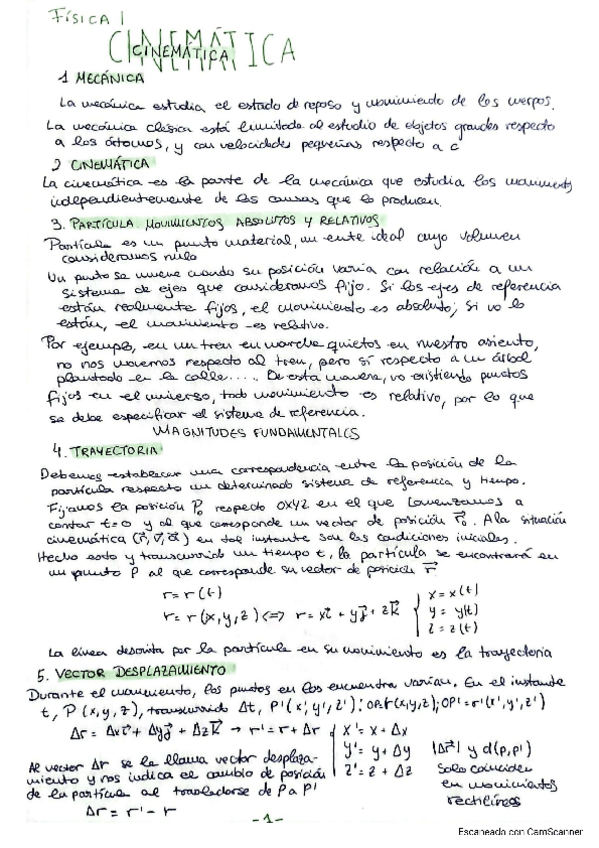 FÍSICA I
CINEMÁTICA
CINEMÁTICA
1 MECÁNICA
La mecánica estudia el estado de reposo y movimiento de los cuerpos.
La mecánica clásica está limitada al estudio de objetos grandes respecto
a los átomos, y con velocidades pequeñas respecto a c
2 CINEMÁTICA
La cinemática es la parte de la mecánica que estudia los movimientos
independientemente de las causas que lo producen.
3. PARTÍCULA MOVIMIENTOS ABSOLUTOS Y RELATIVOS
Partícula es un punto material, un ente ideal cuyo volumen
consideramos nulo
Un punto se mueve cuando su posición varia con relación a un
sistema de ejes que consideramos fijo. Si los ejes de referencia
están realmente fijos, el movimiento es absoluto; si no lo
están, el movimiento es relativo.
Por ejemplo, en un tren en marcha quietos en nuestro asiento,
no nos movemos respecto al tren, pero sí respecto a un árbol
plantado en la calle..... De esta manera, no existiendo puntos
fijos en el universo, todo movimiento es relativo, por lo que
se debe especificar el sistema de referencia.
MAGNITUDES FUNDAMENTALES
4. TRAYECTORIA
Debemos establecer una correspondencia entre la posición de la
partícula respecto un determinado sistema de referencia y tiempo.
Fijamos la posición P₀ respecto OXYZ en el que comenzamos a
contar t=0 y al que corresponde un vector de posición r⃗₀. A la situación
cinemática (r⃗, v⃗, a⃗) en tal instante son las condiciones iniciales.
Hecho esto y transcurrido un tiempo t, la partícula se encontrará en
un punto P al que corresponde su vector de posición r⃗
r = r(t)
r = r(x, y, z) <=> r = xi⃗ + yj⃗ + zk⃗ { x = x(t)
y = y(t)
z = z(t)
La línea descrita por la partícula en su movimiento es la trayectoria
5. VECTOR DESPLAZAMIENTO
Durante el movimiento, los puntos en los encuentra varían. En el instante
t, P(x, y, z), transcurrido Δt, P'(x', y', z'); OP=r(x,y,z); OP'=r'(x', y', z')
Δr = Δxi⃗ + Δyj⃗ + Δzk⃗ → r' = r + Δr { x' = x + Δx
y' = y + Δy
z' = z + Δz
|Δr⃗| y d(P,P')
solo coinciden
en movimientos
rectilíneos
Al vector Δr se le llama vector desplaza-
miento y nos indica el cambio de posición
de la partícula al trasladarse de P a P'
Δr = r' - r
-1-
Escaneado con CamScanner